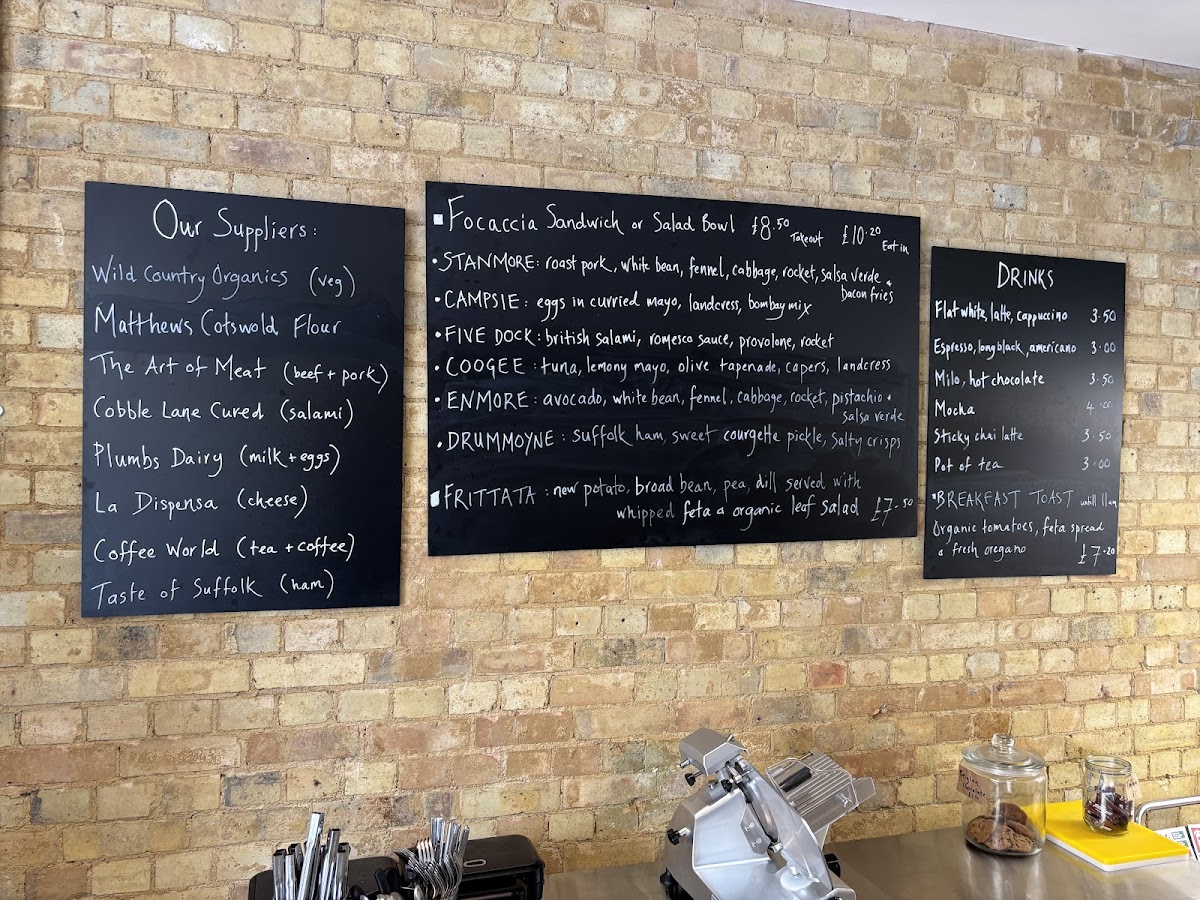 Our Suppliers:
Wild Country Organics (veg)
Matthews Cotswold Flour
The Art of Meat (beef + pork)
Cobble Lane Cured (salami)
Plumbs Dairy (milk + eggs)
La Dispensa (cheese)
Coffee World (tea + coffee)
Taste of Suffolk (ham)
Focaccia Sandwich or Salad Bowl £8.50 Takeout £10.20 Eat in
• STANMORE: roast pork, white bean, fennel, cabbage, rocket, salsa verde &
bacon fries
• CAMPSIE: eggs in curried mayo, landcress, bombay mix
• FIVE DOCK: british salami, romesco sauce, provolone, rocket
• COOGEE: tuna, lemony mayo, olive tapenade, capers, landcress
• ENMORE: avocado, white bean, fennel, cabbage, rocket, pistachio &
salsa verde
• DRUMMOYNE: suffolk ham, sweet courgette pickle, salty crisps
FRITTATA: new potato, broad bean, pea, dill served with
whipped feta & organic leaf salad £7.50
DRINKS
Flat white, latte, cappuccino 3.50
Espresso, long black, americano 3.00
Milo, hot chocolate 3.50
Mocha 4.00
Sticky chai latte 3.50
Pot of tea 3.00
• BREAKFAST TOAST untill 11am
Organic tomatoes, feta spread
& fresh oregano £7.20